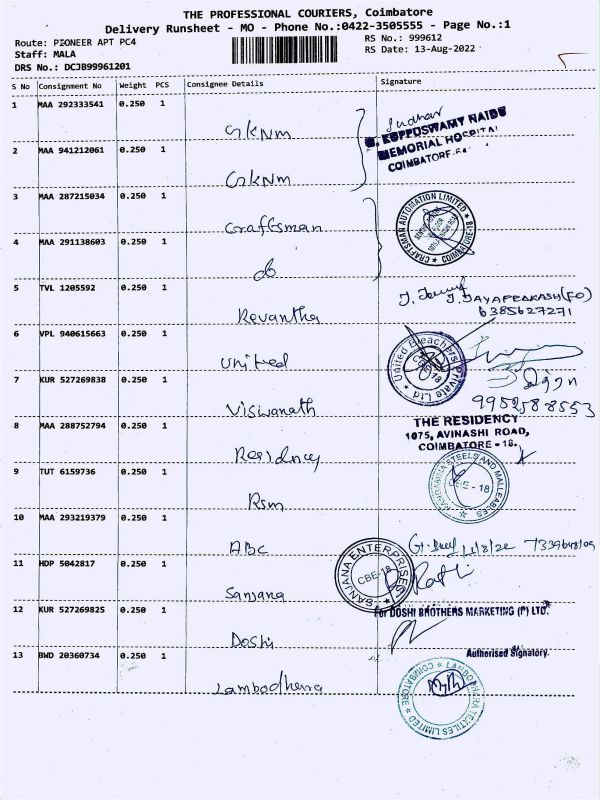 THE PROFESSIONAL COURIERS, Coimbatore
Delivery Runsheet - MO - Phone No.:0422-3505555 - Page No.:1
Route: PIONEER APT PC4 RS No.: 999612
Staff: MALA RS Date: 13-Aug-2022
DRS No.: DCJB99961201
S No Consignment No Weight PCS Consignee Details Signature
1 MAA 292333541 0.250 1 GKNM
G. KUPPUSWAMY NAIDU
MEMORIAL HOSPITAL
COIMBATORE
2 MAA 941212061 0.250 1 GKNM
3 MAA 287215034 0.250 1 Craftsman
CRAFTSMAN AUTOMATION LIMITED COIMBATORE-18
4 MAA 291138603 0.250 1 do
5 TVL 1205592 0.250 1 Revantha
J. JAYAPRAKASH(FO)
6385627271
6 VPL 940615663 0.250 1 United
United Bleachers Private Ltd CBE-18
7 KUR 527269838 0.250 1 Viswanath
9952588553
8 MAA 288752794 0.250 1 Residncy
THE RESIDENCY
1075, AVINASHI ROAD,
COIMBATORE - 18.
9 TUT 6159736 0.250 1 Rsm
STEELS AND MALLEABLES CBE - 18
10 MAA 293219379 0.250 1 ABC
11 HDP 5042817 0.250 1 Sanjana
SANJANA ENTERPRISES CBE-18
Rathi
12 KUR 527269825 0.250 1 Doshi
For DOSHI BROTHERS MARKETING (P) LTD.
Authorised Signatory.
13 BWD 20360734 0.250 1 Lambodhara
LAMBODHARA TEXTILES LIMITED COIMBATORE